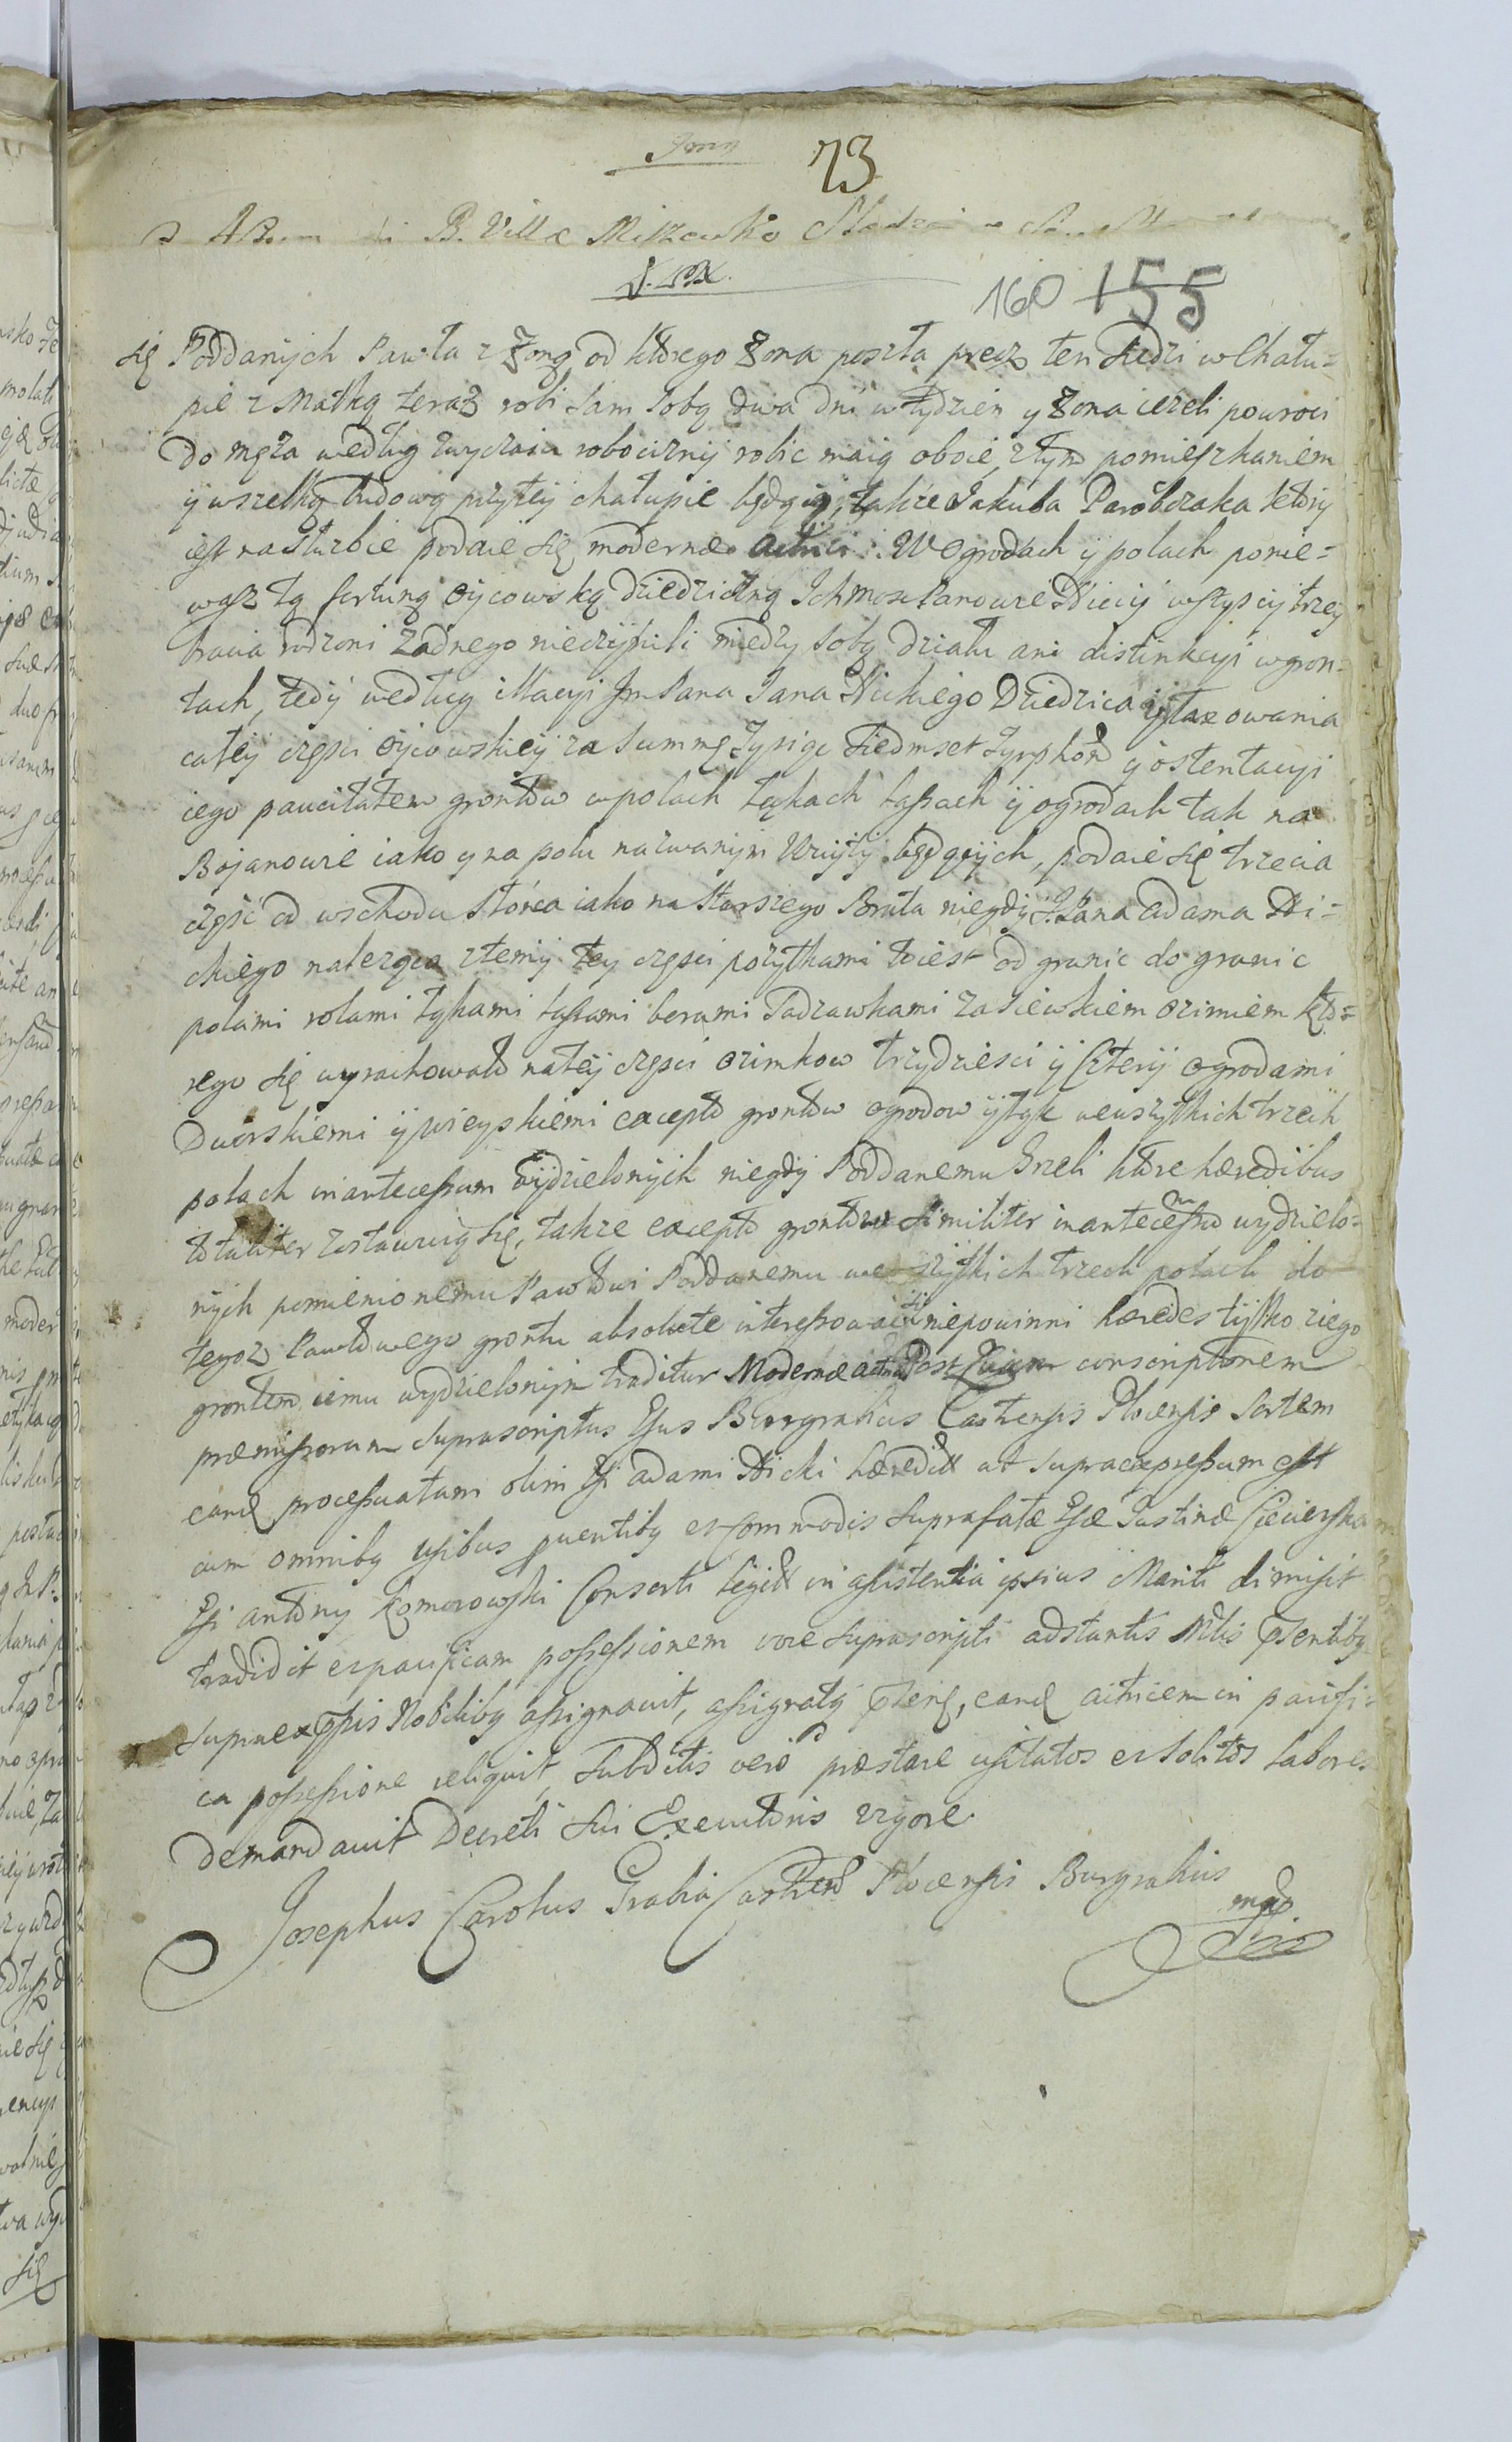 73
B. Villæ Miszewko
160 155
się Poddanych Pawła z Żoną od ktorego Żona poszła precz ten siedzi w Chału=
pie z Matką teraz robi sam sobą dwa dni w tydzien y Żona ieżeli powroci
do męża według zwyczaiu robocizny robic maią oboie, z tym pomieszkaniem
y wszelką budową przy tey chałupie będącą, także Jakuba Parobczaka ktory
iest na służbie podaie się modernæ actrici. W ogrodach y polach ponie=
wasz tą fortuną oycowską dziedziczną Ichmosc Panowie Niccy wszyscy trzey
bracia rodzoni żadnego nieczynili między sobą działu ani distinkcyi w gron=
tach, tedy według illacyi Jm Pana Jana Nickiego Dziedzica y taxowania
całey częsci oycowskiey za summę Tysiąc siedmset Tymphow y ostentacyi
iego paucitatem grontow w polach łąkach lassach y ogrodach tak na
Bojanowie iako y na polu nazwanym będących, podaie się trzecia
częsć od wschodu słońca iako na starszego Brata niegdy J. Pana Adama Ni=
ckiego należąca z temy tey częsci pożytkami to iest od granic do granic
polami rolami łąkami lassami borami Sadzawkami zasiewkiem ozimiem kto=
rego się wyrachowało na tey częsci ozimkow trzydziesci y cztery ogrodami
Dworskiemi y wieyskiemi excepto grontow ogrodow y łąk we wszytkich trzech
polach in antecessum wydzielonych niegdy Poddanemu Grzeli ktore hæredibus
totaliter zostawuią się, także excepto grontow similiter in antecessum wydzielo=
nych pomienionemu Pawłowi Poddanemu we wszystkich trzech polach do
tegoz Pawłowego grontu absolute interessowac się niepowinni hæredes tylko z iego
grontem iemu wydzielonym traditur Modernæ actrici Post quam conscriptionem
præmissorum suprascriptus Gsus Burgrabius Castrensis Plocensis sortem
eand processuatam olim Gsi Adami Nicki hæredit ut supra expressum est
cum omnibq usibus puentibq et commodis suprafatæ Gsæ Justinæ Ciecierska
Gsi Antony Komorowski Consorti legitt in assistentia ipsius Mariti dimisit
tradidit et pacificam possessionem voce suprascripti adstantis Mtlis psentibq
supra expssis Nobilibq assignavit, assignatq psens, eand actricem in pacifi=
ca possessione reliquit, subditis vero præstare usitatos et solitos labores
demandavit Decreti sui Executoris vigore
Josephus Carolus Grabia Castren Plocensis Burgrabius
mpp